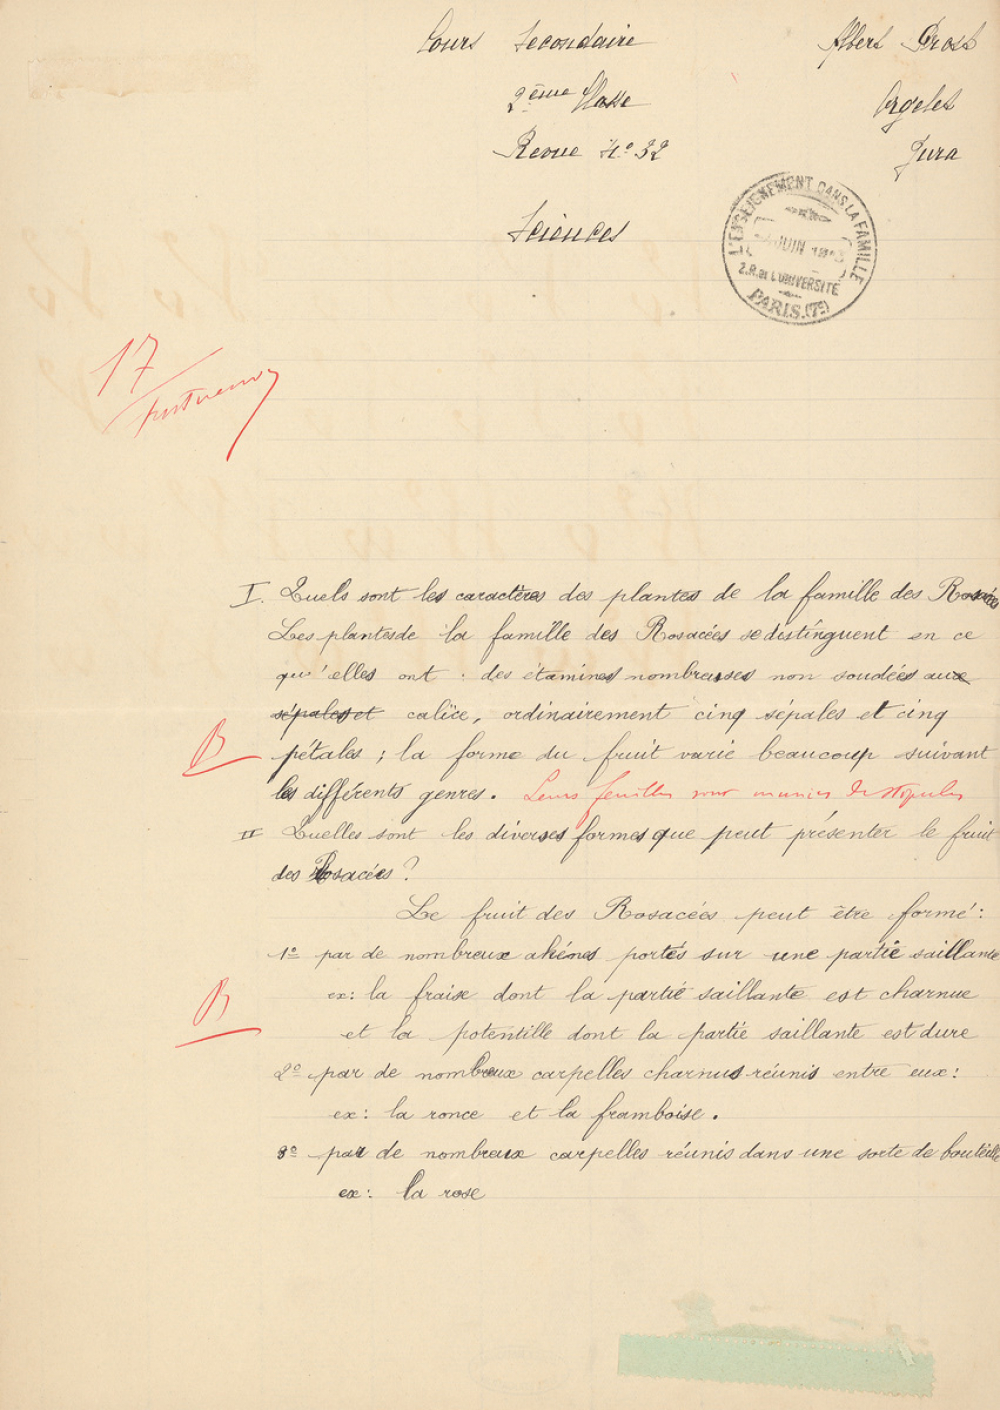 Cours Secondaire
Albert Prost
2ème Classe
Orgelet
Revue N° 32
Jura
Sciences
L'ENSEIGNEMENT DANS LA FAMILLE
JUIN
2.R. de L'UNIVERSITÉ
PARIS.(7e)
17
I. Quels sont les caractères des plantes de la famille des Rosacées
Les plantes de la famille des Rosacées se distinguent en ce
qu'elles ont : des étamines nombreuses non soudées aux
sépales et calice, ordinairement cinq sépales et cinq
B
pétales ; la forme du fruit varie beaucoup suivant
les différents genres. Leurs feuilles sont munies de stipules
II Quelles sont les diverses formes que peut présenter le fruit
des Rosacées ?
Le fruit des Rosacées peut être formé :
1° par de nombreux akènes portés sur une partie saillante
ex : la fraise dont la partie saillante est charnue
B
et la potentille dont la partie saillante est dure
2° par de nombreux carpelles charnus réunis entre eux :
ex : la ronce et la framboise.
3° par de nombreux carpelles réunis dans une sorte de bouteille
ex : la rose